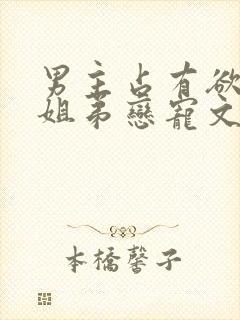 男主占有欲
姐弟戀寵文
本橋馨子